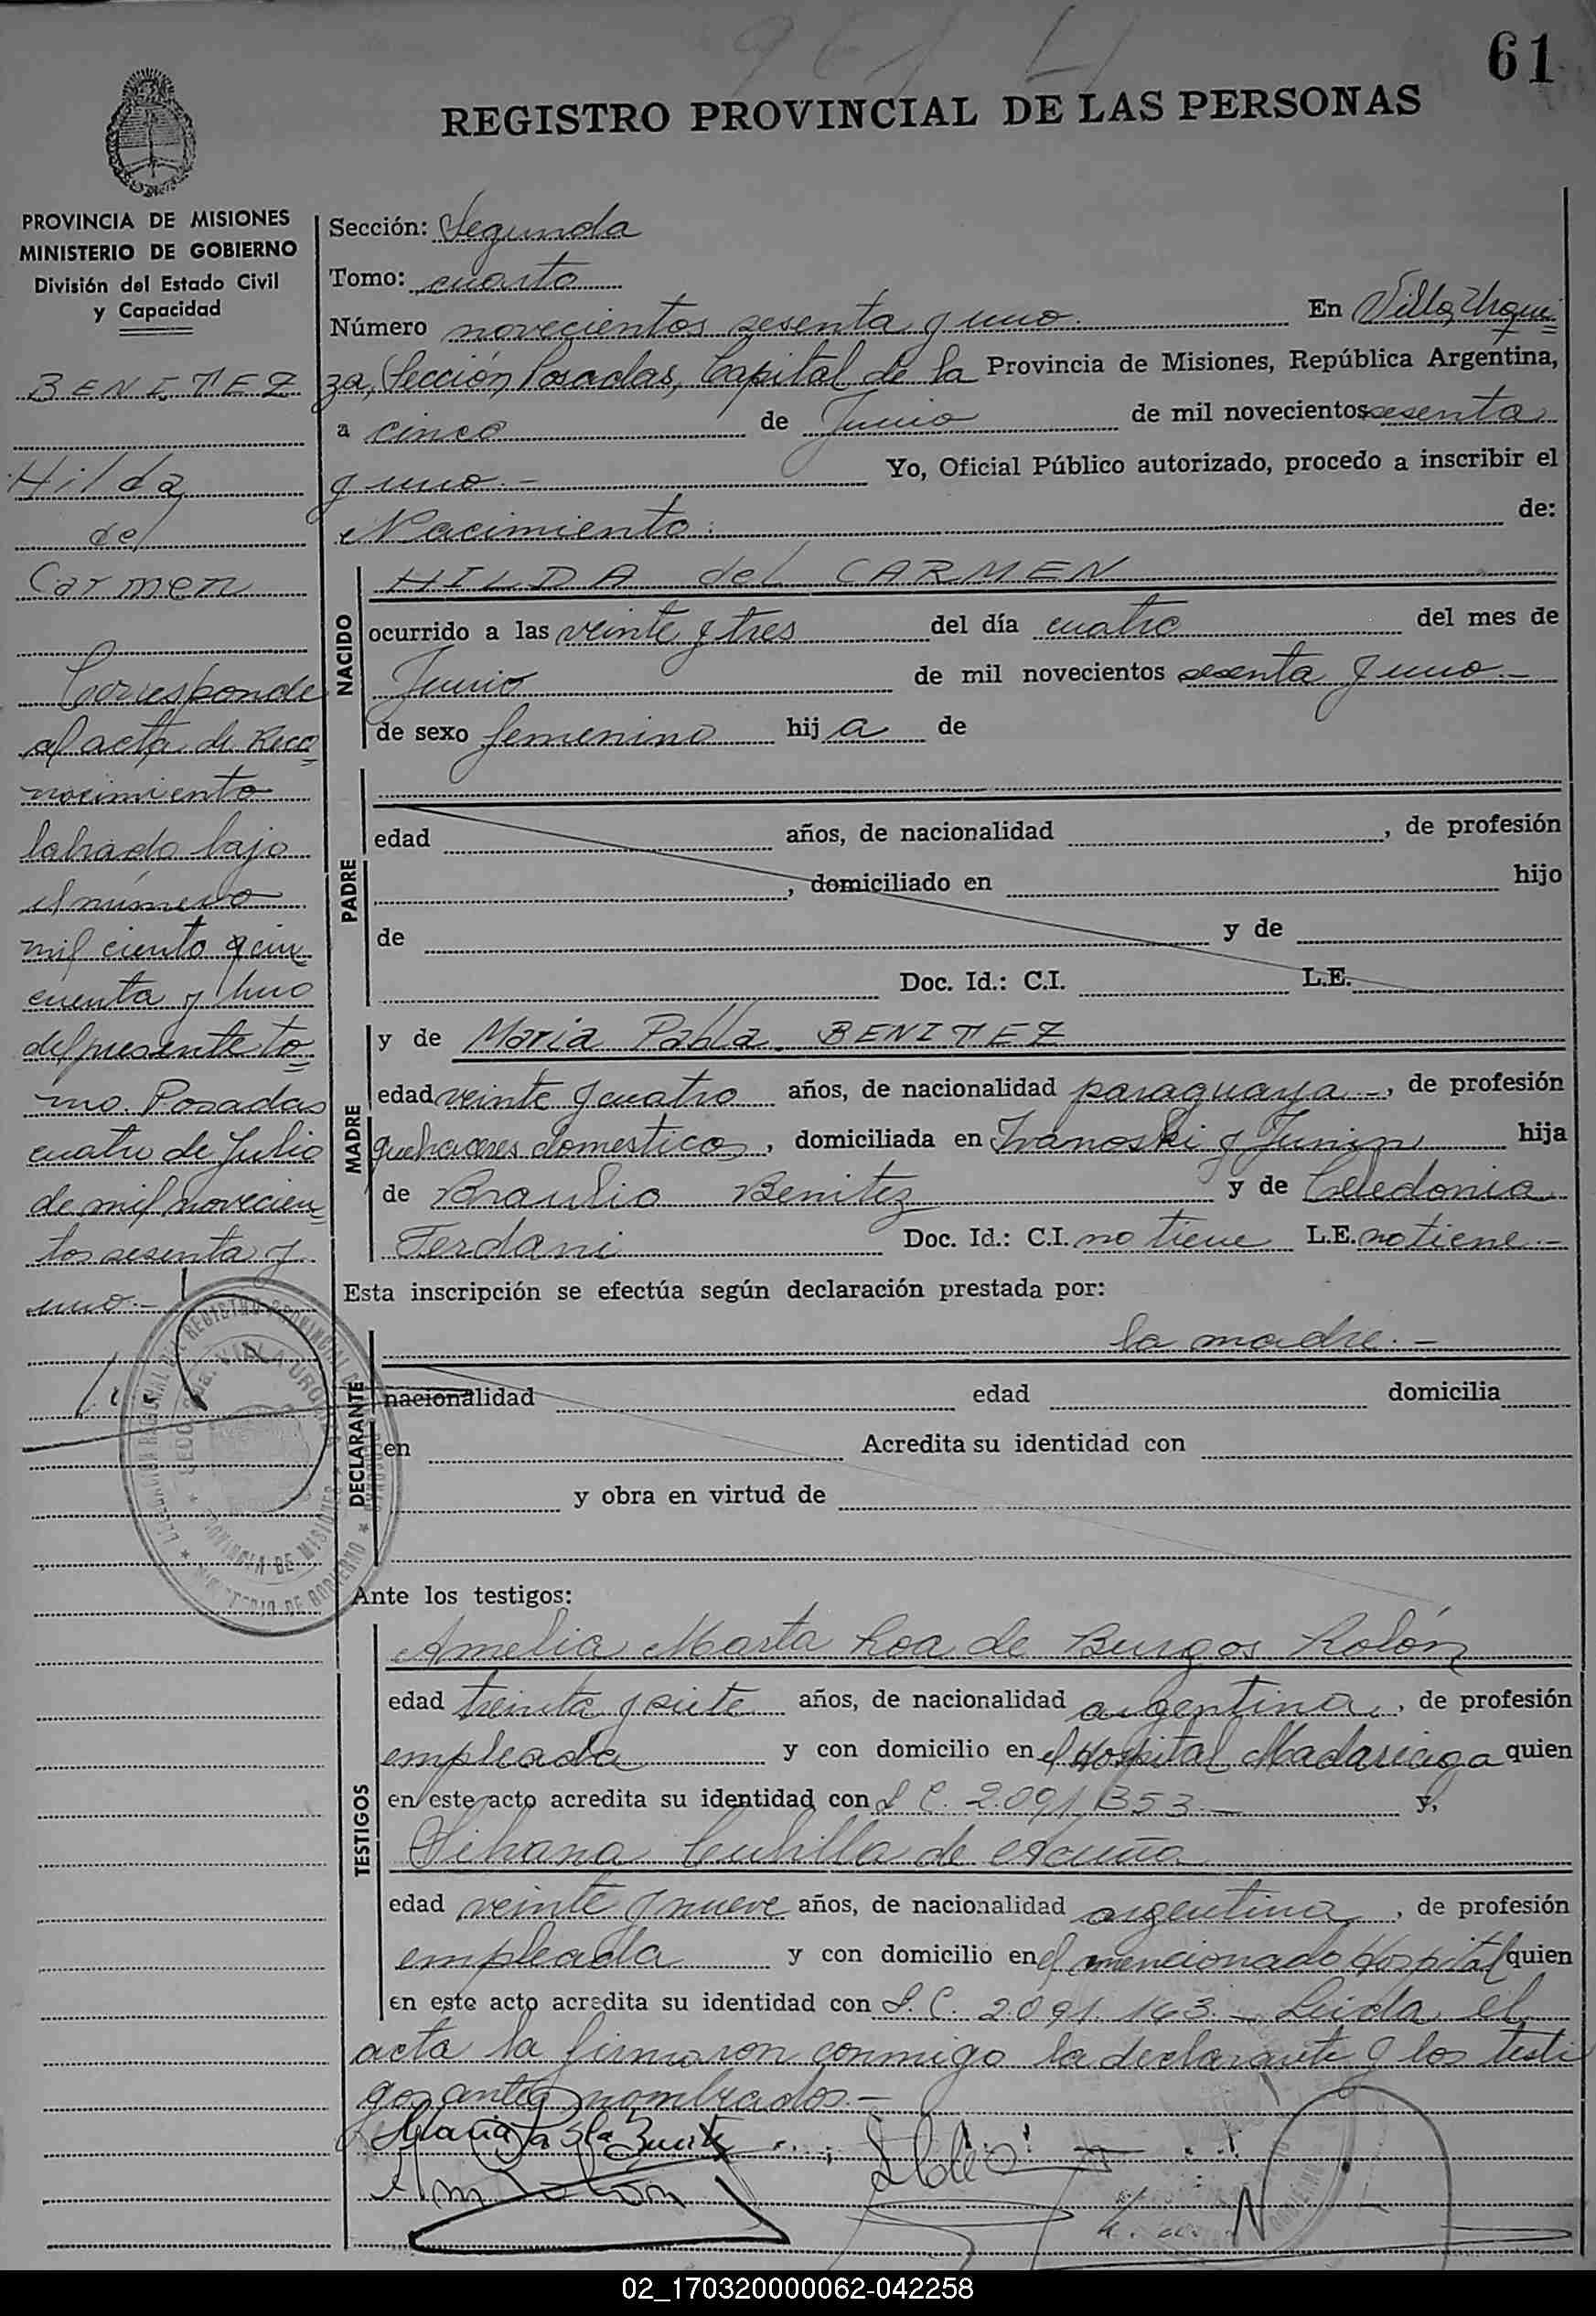 61
REGISTRO PROVINCIAL DE LAS PERSONAS
PROVINCIA DE MISIONES
MINISTERIO DE GOBIERNO
División del Estado Civil
y Capacidad
BENITEZ
Hilda
del
Carmen
Corresponde
al acta de Reco=
nocimiento
labrado bajo
el número
mil ciento cin=
cuenta y uno
del presente to=
mo. Posadas
cuatro de Julio
de mil novecien=
tos sesenta y
uno.-
Sección: Segunda
Tomo: cuarto
Número novecientos sesenta y uno. En Villa Urqui=
za, Sección Posadas, Capital de la Provincia de Misiones, República Argentina,
a cinco de Junio de mil novecientos sesenta
y uno.- Yo, Oficial Público autorizado, procedo a inscribir el
Nacimiento de:
NACIDO
HILDA del CARMEN
ocurrido a las veinte y tres del día cuatro del mes de
Junio de mil novecientos sesenta y uno.-
de sexo femenino hija de
PADRE
edad años, de nacionalidad , de profesión
, domiciliado en hijo
de y de
Doc. Id.: C.I. L.E.
MADRE
y de Maria Pabla BENITEZ
edad veinte y cuatro años, de nacionalidad paraguaya.-, de profesión
quehaceres domesticos, domiciliada en Ivanoski y Junin hija
de Braulio Benitez y de Celedonia
Ferdani Doc. Id.: C.I. no tiene L.E. no tiene.-
Esta inscripción se efectúa según declaración prestada por:
DECLARANTE
la madre.-
nacionalidad edad domicilia
en Acredita su identidad con
y obra en virtud de
Ante los testigos:
TESTIGOS
Amelia Marta Roa de Burgos Rolón
edad treinta y siete años, de nacionalidad argentina, de profesión
empleada y con domicilio en el Hospital Madariaga quien
en este acto acredita su identidad con L C. 2.091.353.- y,
Silvana de Acuña
edad veinte y nueve años, de nacionalidad argentina, de profesión
empleada y con domicilio en el mencionado Hospital quien
en este acto acredita su identidad con L. C. 2.091.163.- Leida el
acta la firmaron conmigo la declarante y los testi
gos antes nombrados.-
Maria Pabla Benitez
02_170320000062-042258